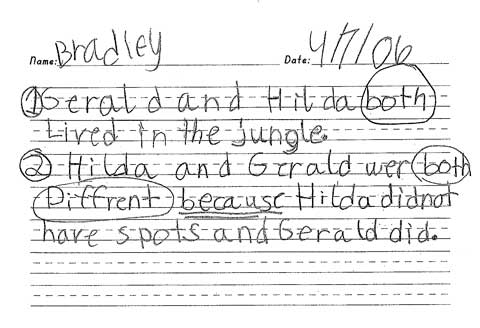 Name: Bradley Date: 4/7/06
① Gerald and Hilda both
Lived in the jungle.
② Hilda and Gerald wer both
Diffrent because Hilda didnot
have spots and Gerald did.